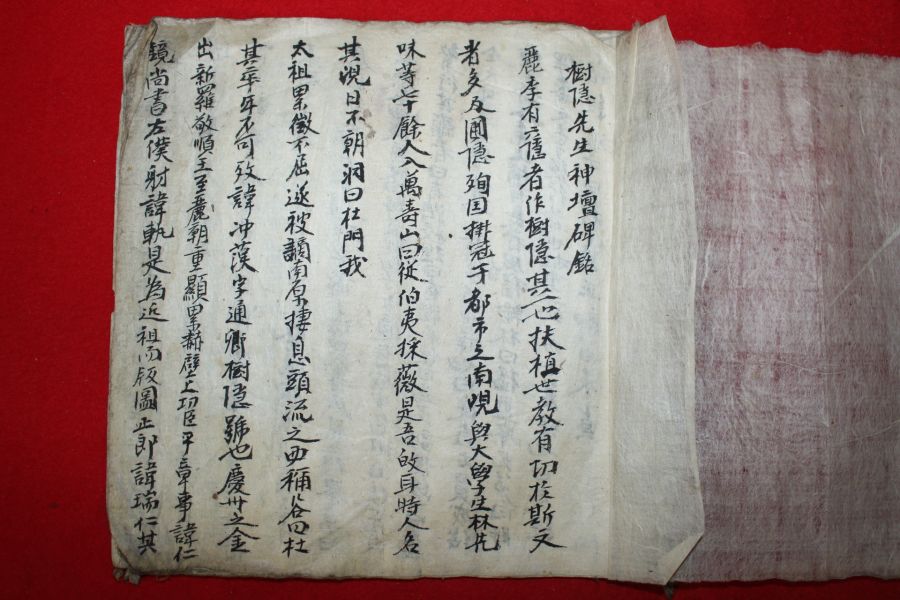 樹隱先生神壇碑銘
麗季有舊者作樹隱其一也扶植世教有切於斯文
者多及圃隱殉国掛冠于都市之南峴與大學生林先
味等七十餘人入萬壽山曰從伯夷採薇是吾的耳時人名
其峴曰不朝洞曰杜門我
太祖累徵不屈遂被謫南原捿息頭流之西稱谷曰杜
其卒年不可攷諱冲漢字通卿樹隱號也慶州之金
出新羅敬順王至麗朝重顯累赫壁上功臣平章事諱仁
鏡尚書左僕射諱軌是為近祖而版圖正郎諱瑞仁其